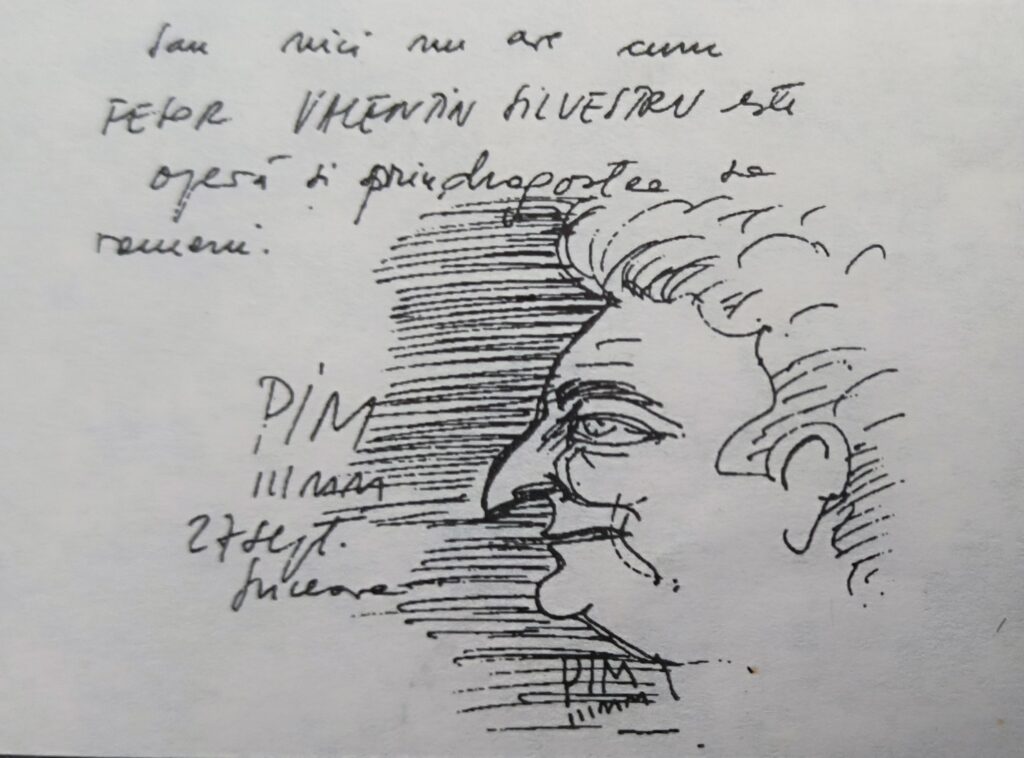 sau nici nu are cum
FESOR VALENTIN SILVESTRU este
operă si prin dragostea sa
romani.
DIM
IIIMM
27 sept.
Suceava
DIM
IIIMM